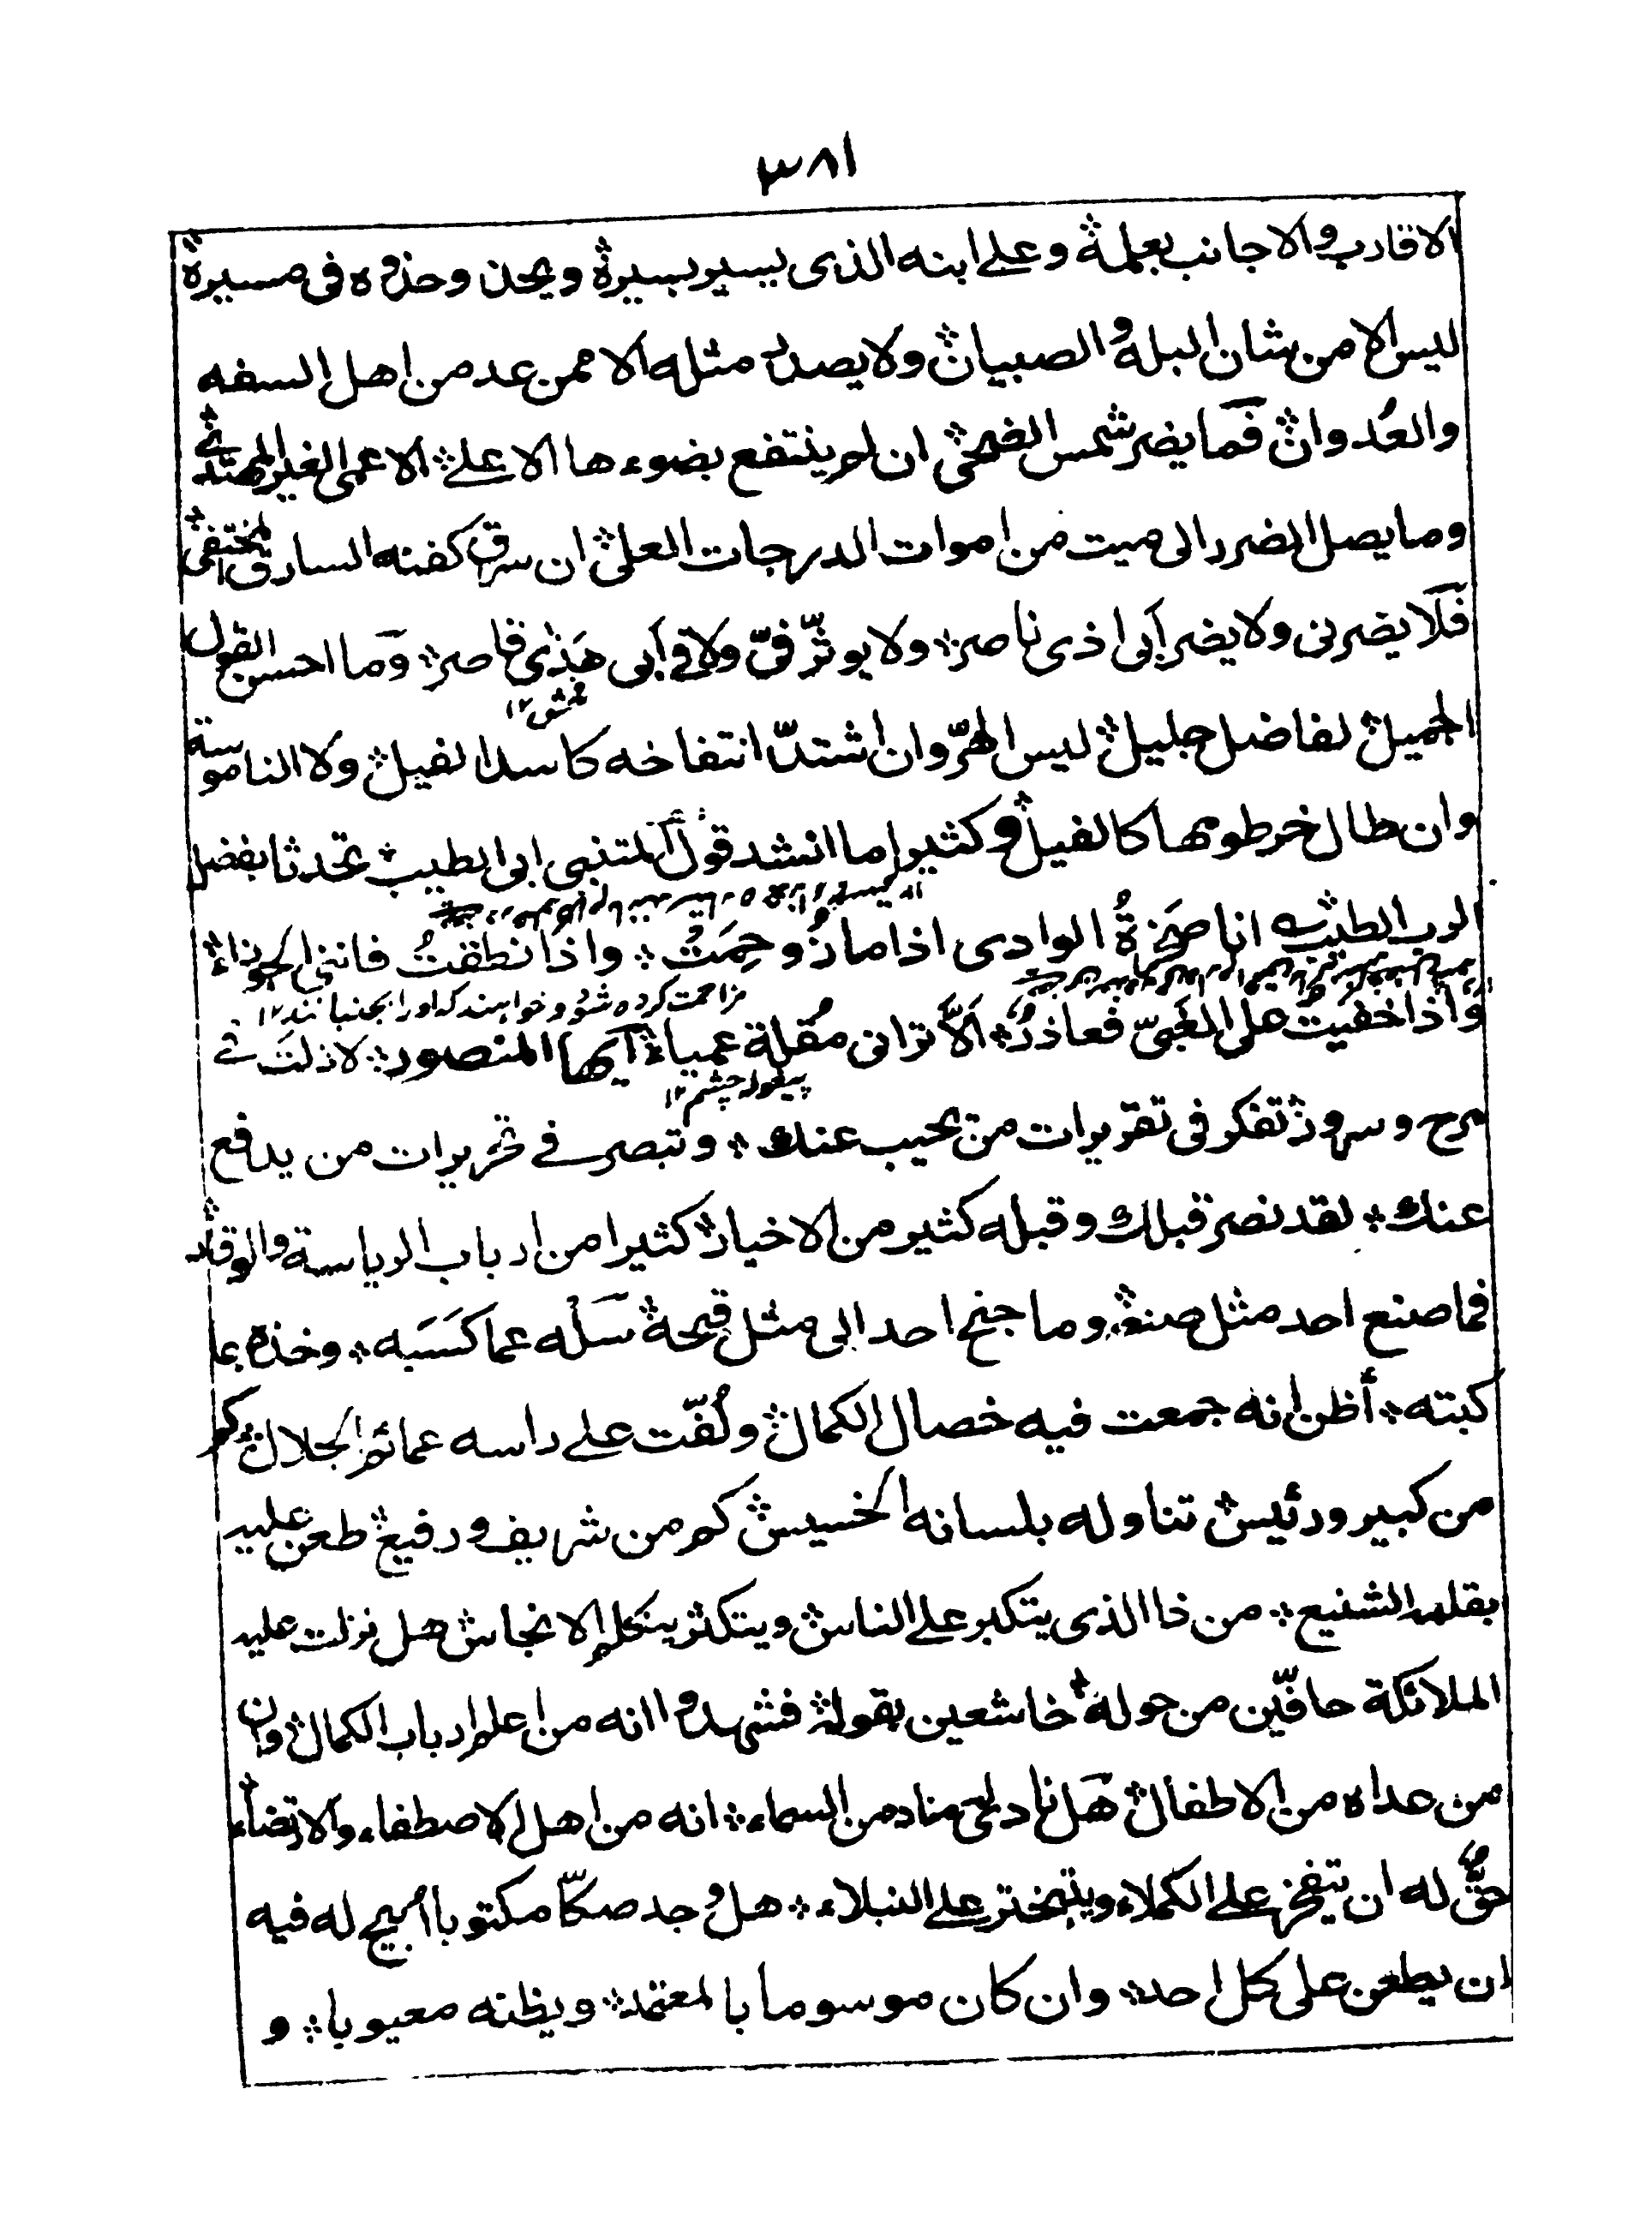 ٣٨١
الاقارب والاجانب بعلمه ۞ وعلى ابنه الذى يسير بسيره ۞ ويحذ وحذوه فى مسيره ۞
ليس الا من شان البله والصبيان ۞ ولا يصدر مثله الا ممن عد من اهل السفه
والعُدوان ۞ فَما يضر شمس الضحى ۞ ان لم ينتفع بضوءها الاعلى ۞ الاعمى الغير المهتدى ۞
وما يصل الضرر الى ميت من اموات الدرجات العلى ۞ ان سرق كفنه السارق المختفى ۞
فَلا يضرنى ولا يضر أبى اذى ناصر ۞ ولا يوثّر فىّ ولا فى أبى هَذْى قاصر ۞ وَما احسن القول
فحش ١٢
الجميل ۞ لفاضل جليل ۞ ليس الهرّ وان اشتدّ انتفاخه كاسد الفيل ۞ ولا الناموسة
وان طال خرطومها كالفيل ۞ وكثيرا ما انشد قول المتنبى ابى الطيب ۞ تحدثا بفضل
الرب الطيب ۞ انا صَخرةُ الوادى اذا ما زُوحِمَتْ ۞ واذا نطقتُ فاننى الجوزاء ۞
مزاحمت كرده شود و خواهند كه اورا بجنبانند ١٢
واذا خَفيتُ على الغبىّ فعاذرٌ ۞ اَلاَّ ترانى مُقلة عمياء ۞ أيها المنصور ۞ لازلتَ فے
پيغوله چشم ١٢
مرح وسرور ۞ تفكر فى تقريرات من يجيب عنك ۞ وتبصر فے تحريرات من يدفع
عنك ۞ لقد نصر قبلك وقبله كثير من الاخيار ۞ كثيرا من ارباب الرياسة والوقار ۞
فما صنع احد مثل صنعه ۞ وما جنح احد الى مثل قبحه ۞ سَلْه عما كَسَبَه ۞ وخذه بما
كبته ۞ أظن انه جمعت فيه خصال الكمال ۞ ولُفّت على راسه عمائم الجلال ۞ كم
من كبير ورئيس ۞ تناوله بلسانه الخسيس ۞ كم من شريف ورفيع ۞ طعن عليه
بقلمه الشنيع ۞ من ذا الذى يتكبر على الناس ۞ ويتكثر بتكلم الانجاس ۞ هل نزلت عليه
الملائكة حافّين من حوله ۞ خاشعين بقوله ۞ فشهدوا انه من اعلم ارباب الكمال ۞ وان
من عداه من الاطفال ۞ هَل نادى مناد من السماء ۞ انه من اهل الاصطفاء والارتضاء ۞
حقٌّ له ان يتفخر على الكملاء ويتبختر على النبلاء ۞ هل وُجد صكّا مكتوبا أبيح له فيه
ان يطعن على كل احد ۞ وان كان موسوما بالمعتمد ۞ ويظنه معيوبا ۞ و